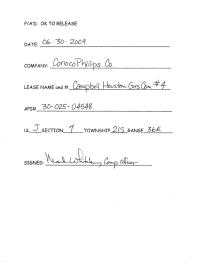 P/A'D. OK TO RELEASE
DATE: 06-30-2009
COMPANY: ConocoPhillips Co.
LEASE NAME and #: Campbell Houston Gas Com #4
API# 30-025-04548
UL J SECTION 7 TOWNSHIP 21S RANGE 36E
SIGNED: Comp. Officer